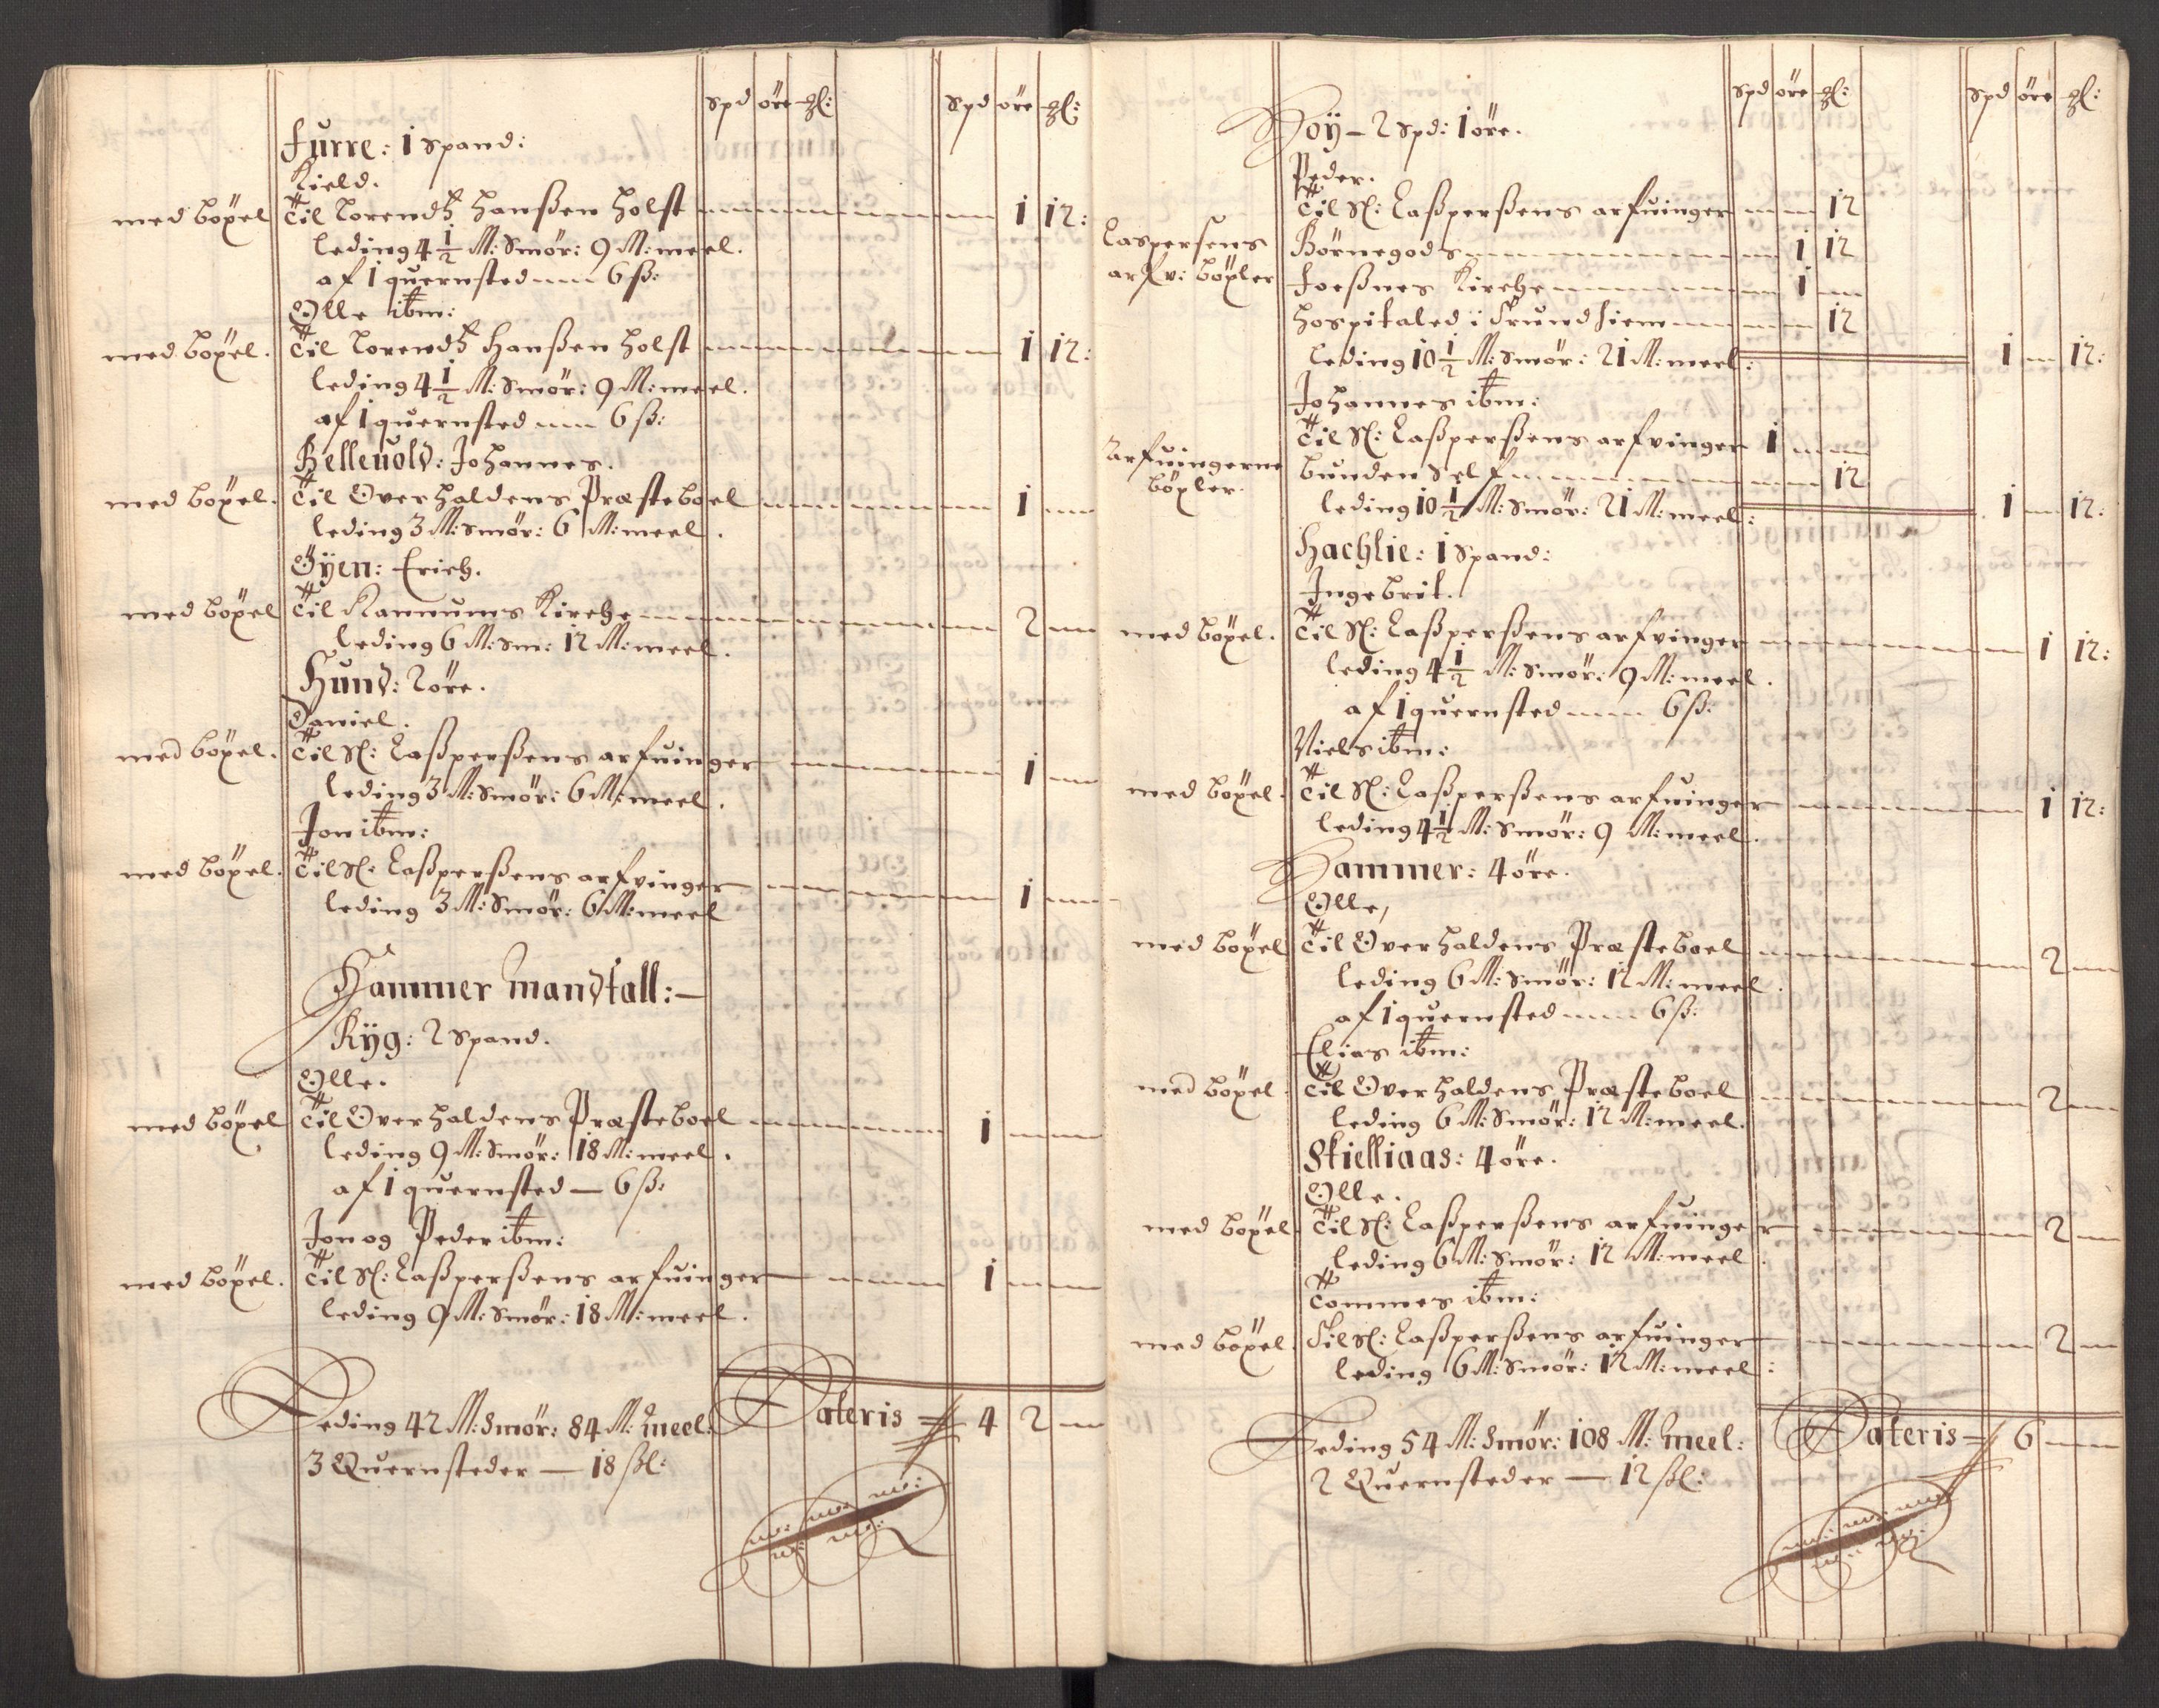 spd öre gl: spd öre gl:
Furre: 1 Spand:
Kield.
med böxel Til Lorendtz Hansßen Holst 1 12:
leding 4 1/2 M: Smör: 9 M: meel.
af 1 quernsted 6 ß:
Olle ibm:
med böxel. Til Lorendtz Hansßen Holst 1 12:
leding 4 1/2 M: Smör: 9 M: meel.
af 1 quernsted 6 ß:
Bellevold: Johannes.
med böxel. Til Overhaldens Præsteboel 1
leding 3 M: Smör: 6 M: meel.
Öyen: Erich.
med böxel Til Rannums Kirche 2
leding 6 M: Sm: 12 M: meel.
Hund: 2 öre.
Daniel.
med böxel. Til Sl: Casperßens arfuinger 1
leding 3 M: Smör: 6 M: meel.
Jon ibm:
med böxel. Til Sl: Casperßens arfvinger 1
leding 3 M: Smör: 6 M: meel
Hammer mandtall:
Ryg: 2 Spand.
Olle.
med böxel Til Overhaldens Præsteboel 1
leding 9 M: Smör: 18 M: meel.
af 1 quernsted 6 ß:
Jon og Peder ibm:
med böxel. Til Sl: Casperßens arfuinger 1
leding 9 M: Smör: 18 M: meel.
Leding 42 M: Smör: 84 M: meel: Lateris 4 2
3 Quernsteder 18 ßl:
spd öre gl: spd öre gl:
Höy 2 spd: 1 öre.
Peder.
Til Sl: Casperßens arfuinger 12
Caspersens Börnegods 1 12
arfv: böxler Foeßnes Kirche 1
Hospitaled i Trundhiem 12
leding 10 1/2 M: Smör: 21 M: meel: 1 12:
Johannes ibm:
Til Sl: Casperßens arfvinger 1
Arfuingerne bunden Self 12
böxler. leding 10 1/2 M: Smör: 21 M: meel: 1 12:
Hachlie: 1 Spand:
Ingebrit.
med böxel. Til Sl: Casperßens arfvinger 1 12:
leding 4 1/2 M: Smör: 9 M: meel.
af 1 quernsted 6 ß:
Niels ibm:
med böxel. Til Sl: Casperßens arfuinger 1 12:
leding 4 1/2 M: Smör: 9 M: meel.
Hammer: 4 öre.
Olle,
med böxel Til Overhaldens Præsteboel 2
leding 6 M: Smör: 12 M: meel.
af 1 quernsted 6 ß:
Elias ibm:
med böxel. Til Overhaldens Præsteboel 2
leding 6 M: Smör: 12 M: meel.
Skielliaas: 4 öre.
Olle.
med böxel. Til Sl: Casperßens arfuinger 2
leding 6 M: Smör: 12 M: meel.
Tommes ibm:
med böxel. Til Sl: Casperßens arfuinger 2
leding 6 M: Smör: 12 M: meel:
Leding 54 M: Smör: 108 M: meel: Lateris 6
2 Quernsteder 12 ßl: